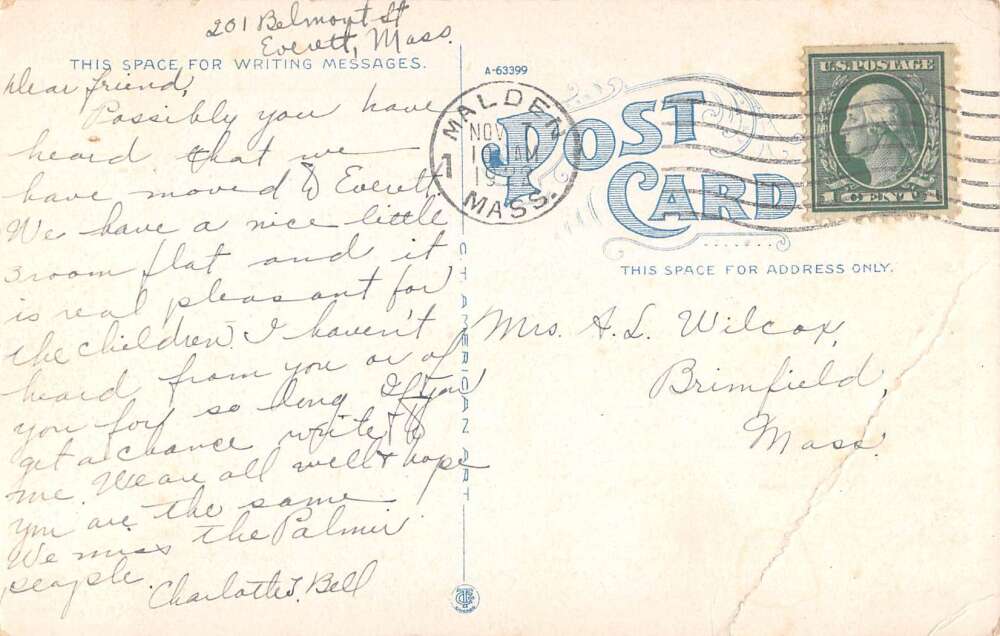 201 Belmont St
Everett, Mass.
THIS SPACE FOR WRITING MESSAGES.
Dear friend,
Possibly you have
heard that we
have moved to Everett.
We have a nice little
3 room flat and it
is real pleasant for
the children. I haven't
heard from you or of
you for so long. If you
get a chance write to
me. We are all well & hope
you are the same
We miss the Palmer
people.
Charlotte J. Bell
A-63399
C.T. AMERICAN ART
POST
CARD
MALDEN
NOV 7
10 AM
MASS.
1
U.S. POSTAGE
1 CENT 1
THIS SPACE FOR ADDRESS ONLY.
Mrs. A. L. Wilcox,
Brimfield,
Mass.